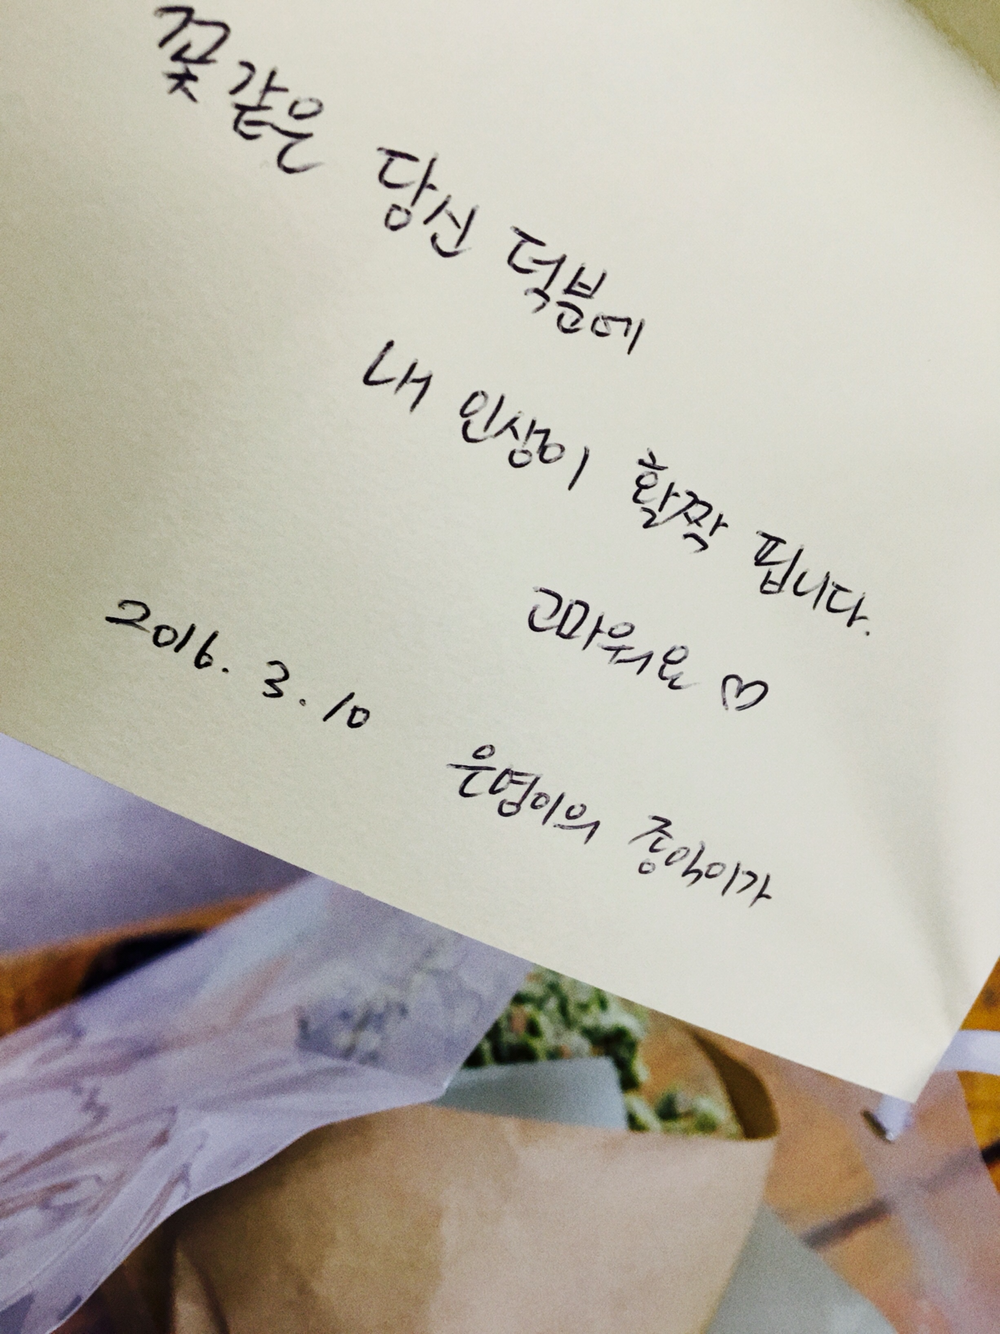 꽃같은 당신 덕분에
내 인생이 활짝 핍니다.
고마워요 ♡
2016. 3. 10
은영이의 종악이가